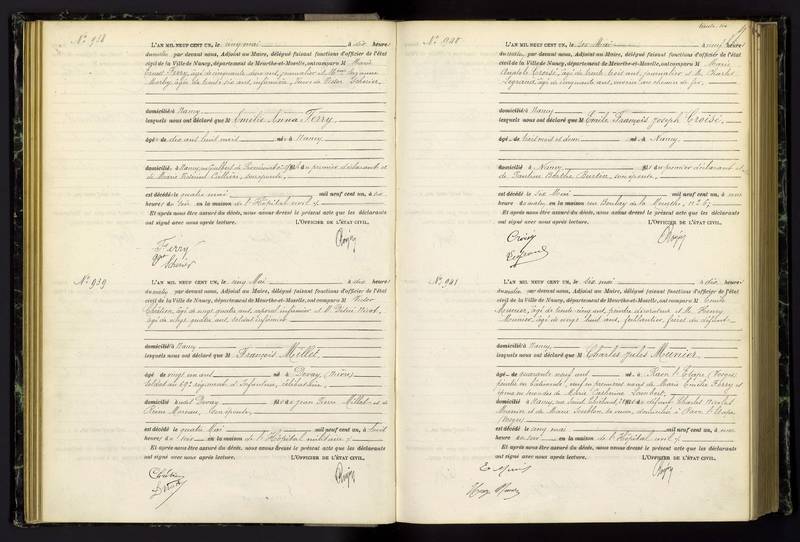 N° 938
L'AN MIL NEUF CENT UN, le cinq mai à dix heures
du matin par devant nous, Adjoint au Maire, délégué faisant fonctions d'officier de l'état
civil de la Ville de Nancy, département de Meurthe-et-Moselle, ont comparu M Marie
Ernest Ferry, âgé de cinquante deux ans, journalier et Mme Suzanne
âgée de trente six ans, infirmière, Veuve de Victor Scherier
domicilié à Nancy
lesquels nous ont déclaré que M Emélie Anna Ferry
âgé de dix ans huit mois né à Nancy
domicilié à Nancy, fils du premier déclarant et
de Marie son épouse,
est décédé le quatre mai mil neuf cent un, à six
heures du soir en la maison de l'Hôpital civil
Et après nous être assuré du décès, nous avons dressé le présent acte que les déclarants
ont signé avec nous après lecture. L'OFFICIER DE L'ÉTAT CIVIL,
Ferry
Scherier
N° 939
L'AN MIL NEUF CENT UN, le cinq Mai à dix heures
du matin par devant nous, Adjoint au Maire, délégué faisant fonctions d'officier de l'état
civil de la Ville de Nancy, département de Meurthe-et-Moselle, ont comparu M Victor
Chrétien, âgé de vingt quatre ans, caporal infirmier et M. Désiré
âgé de vingt quatre ans, soldat infirmier
domicilié à Nancy
lesquels nous ont déclaré que M François Millet
âgé de vingt un ans né à Devay, (Nièvre)
soldat au 69e régiment d'Infanterie, célibataire,
domicilié audit Devay fils de Jean Pierre Millet et de
Reine Moreau, son épouse,
est décédé le quatre Mai mil neuf cent un, à huit
heures du soir en la maison de l'Hôpital militaire
Et après nous être assuré du décès, nous avons dressé le présent acte que les déclarants
ont signé avec nous après lecture. L'OFFICIER DE L'ÉTAT CIVIL,
N° 940
L'AN MIL NEUF CENT UN, le six Mai à neuf heures
du matin, par devant nous, Adjoint au Maire, délégué faisant fonctions d'officier de l'état
civil de la Ville de Nancy, département de Meurthe-et-Moselle, ont comparu M Marie
Anatole Croisé, âgé de trente trois ans, journalier et M. Charles
Legrand, âgé de cinquante ans, ouvrier au chemin de fer,
domicilié à Nancy
lesquels nous ont déclaré que M Emile François Joseph Croisé
âgé de trois mois et demi né à Nancy
domicilié à Nancy fils du premier déclarant et
de Pauline Berthe Burtin son épouse,
est décédé le six Mai mil neuf cent un, à
heures du matin, en la maison rue Boulay de la Meurthe, n° 26
Et après nous être assuré du décès, nous avons dressé le présent acte que les déclarants
ont signé avec nous après lecture. L'OFFICIER DE L'ÉTAT CIVIL,
Croisé
Legrand
N° 941
L'AN MIL NEUF CENT UN, le six mai à dix heures
du matin par devant nous, Adjoint au Maire, délégué faisant fonctions d'officier de l'état
civil de la Ville de Nancy, département de Meurthe-et-Moselle, ont comparu M Emile
Meunier, âgé de trente cinq ans, peintre décorateur et M. Henry
Meunier, âgé de vingt huit ans, ferblantier, frères du défunt
domicilié à Nancy
lesquels nous ont déclaré que M Charles Jules Meunier
âgé de quarante neuf ans né à Raon l'Etape (Vosges)
peintre en bâtiments, veuf en premières noces de Marie Emilie Ferry et
époux en secondes de Marie Catherine Lambert,
domicilié à Nancy, fils de défunt Charles Nicolas
Meunier et de Marie sa veuve, domiciliée à Raon l'Etape
(Vosges)
est décédé le cinq mai mil neuf cent un, à
heures du soir en la maison de l'Hôpital civil
Et après nous être assuré du décès, nous avons dressé le présent acte que les déclarants
ont signé avec nous après lecture. L'OFFICIER DE L'ÉTAT CIVIL,